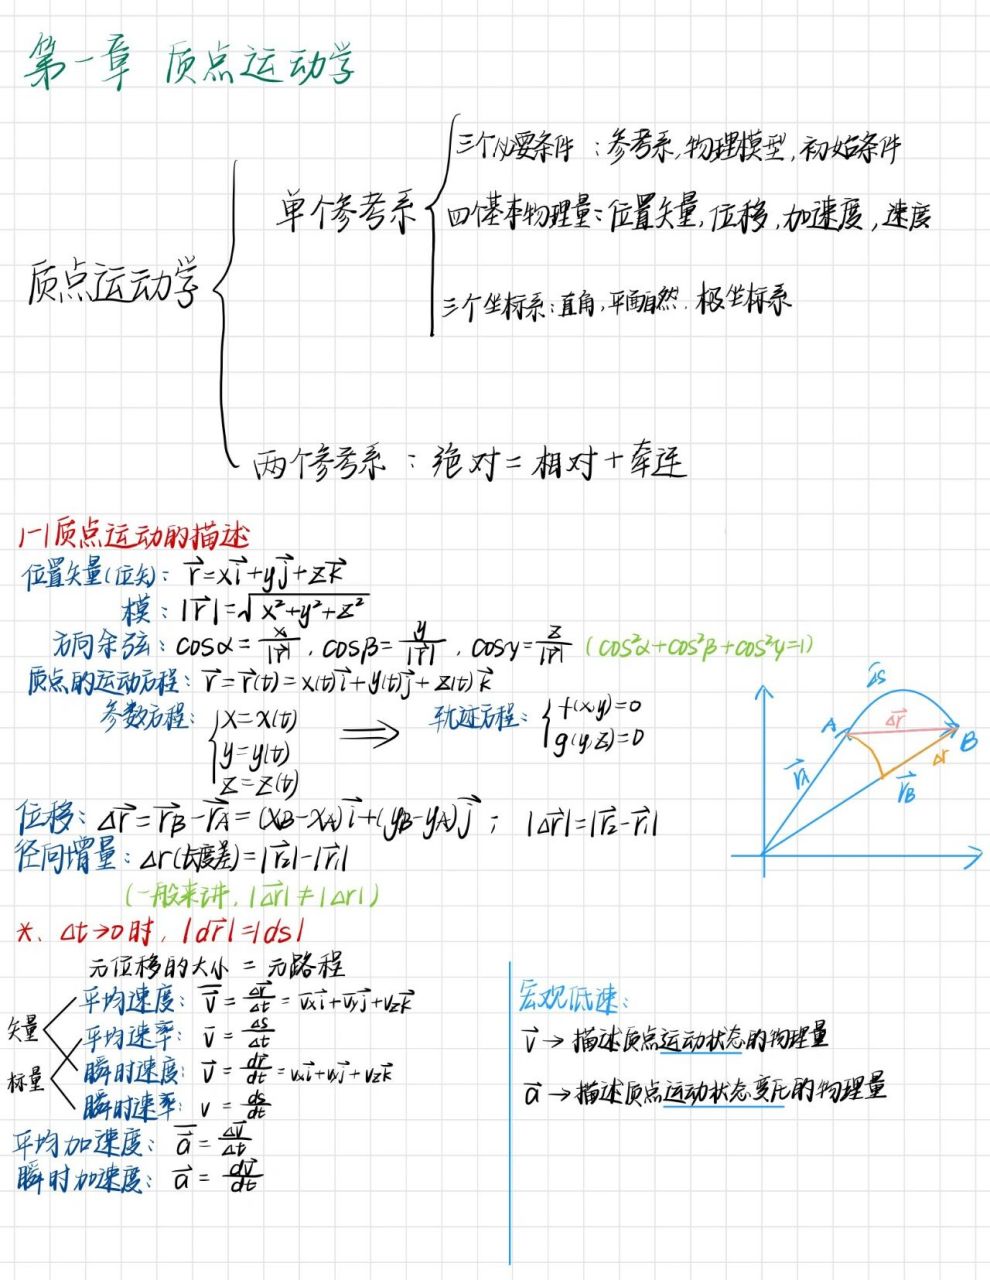 第一章 质点运动学
三个必要条件：参考系,物理模型,初始条件
单个参考系
四个基本物理量：位置矢量,位移,加速度,速度
质点运动学
三个坐标系：直角,平面自然.极坐标系
两个参考系：绝对=相对+牵连
1-1质点运动的描述
位置矢量(位矢): r⃗=xi⃗+yj⃗+zk⃗
模：|r⃗|=√(x²+y²+z²)
方向余弦：cosα=x/|r⃗|，cosβ=y/|r⃗|，cosγ=z/|r⃗| (cos²α+cos²β+cos²γ=1)
质点的运动方程：r⃗=r⃗(t)=x(t)i⃗+y(t)j⃗+z(t)k⃗
参数方程：{x=x(t) ⟹ 轨迹方程：{f(x,y)=0
y=y(t) g(y,z)=0
z=z(t)
位移：Δr⃗=r⃗B-r⃗A=(xB-xA)i⃗+(yB-yA)j⃗； |Δr⃗|=|r⃗₂-r⃗₁|
径向增量：Δr(长度差)=|r⃗₂|-|r⃗₁|
(一般来讲，|Δr⃗|≠|Δr|)
Δs
A Δr⃗ B
r⃗A r⃗B Δr
*. Δt→0时，|dr⃗|=|ds|
元位移的大小=元路程
矢量
标量
平均速度：v̅⃗=Δr⃗/Δt=vxi⃗+vyj⃗+vzk⃗
平均速率：v̅=Δs/Δt
瞬时速度：v⃗=dr⃗/dt=vxi⃗+vyj⃗+vzk⃗
瞬时速率：v=ds/dt
平均加速度：a̅⃗=Δv⃗/Δt
瞬时加速度：a⃗=dv⃗/dt
宏观低速：
v⃗→描述质点运动状态的物理量
a⃗→描述质点运动状态变化的物理量